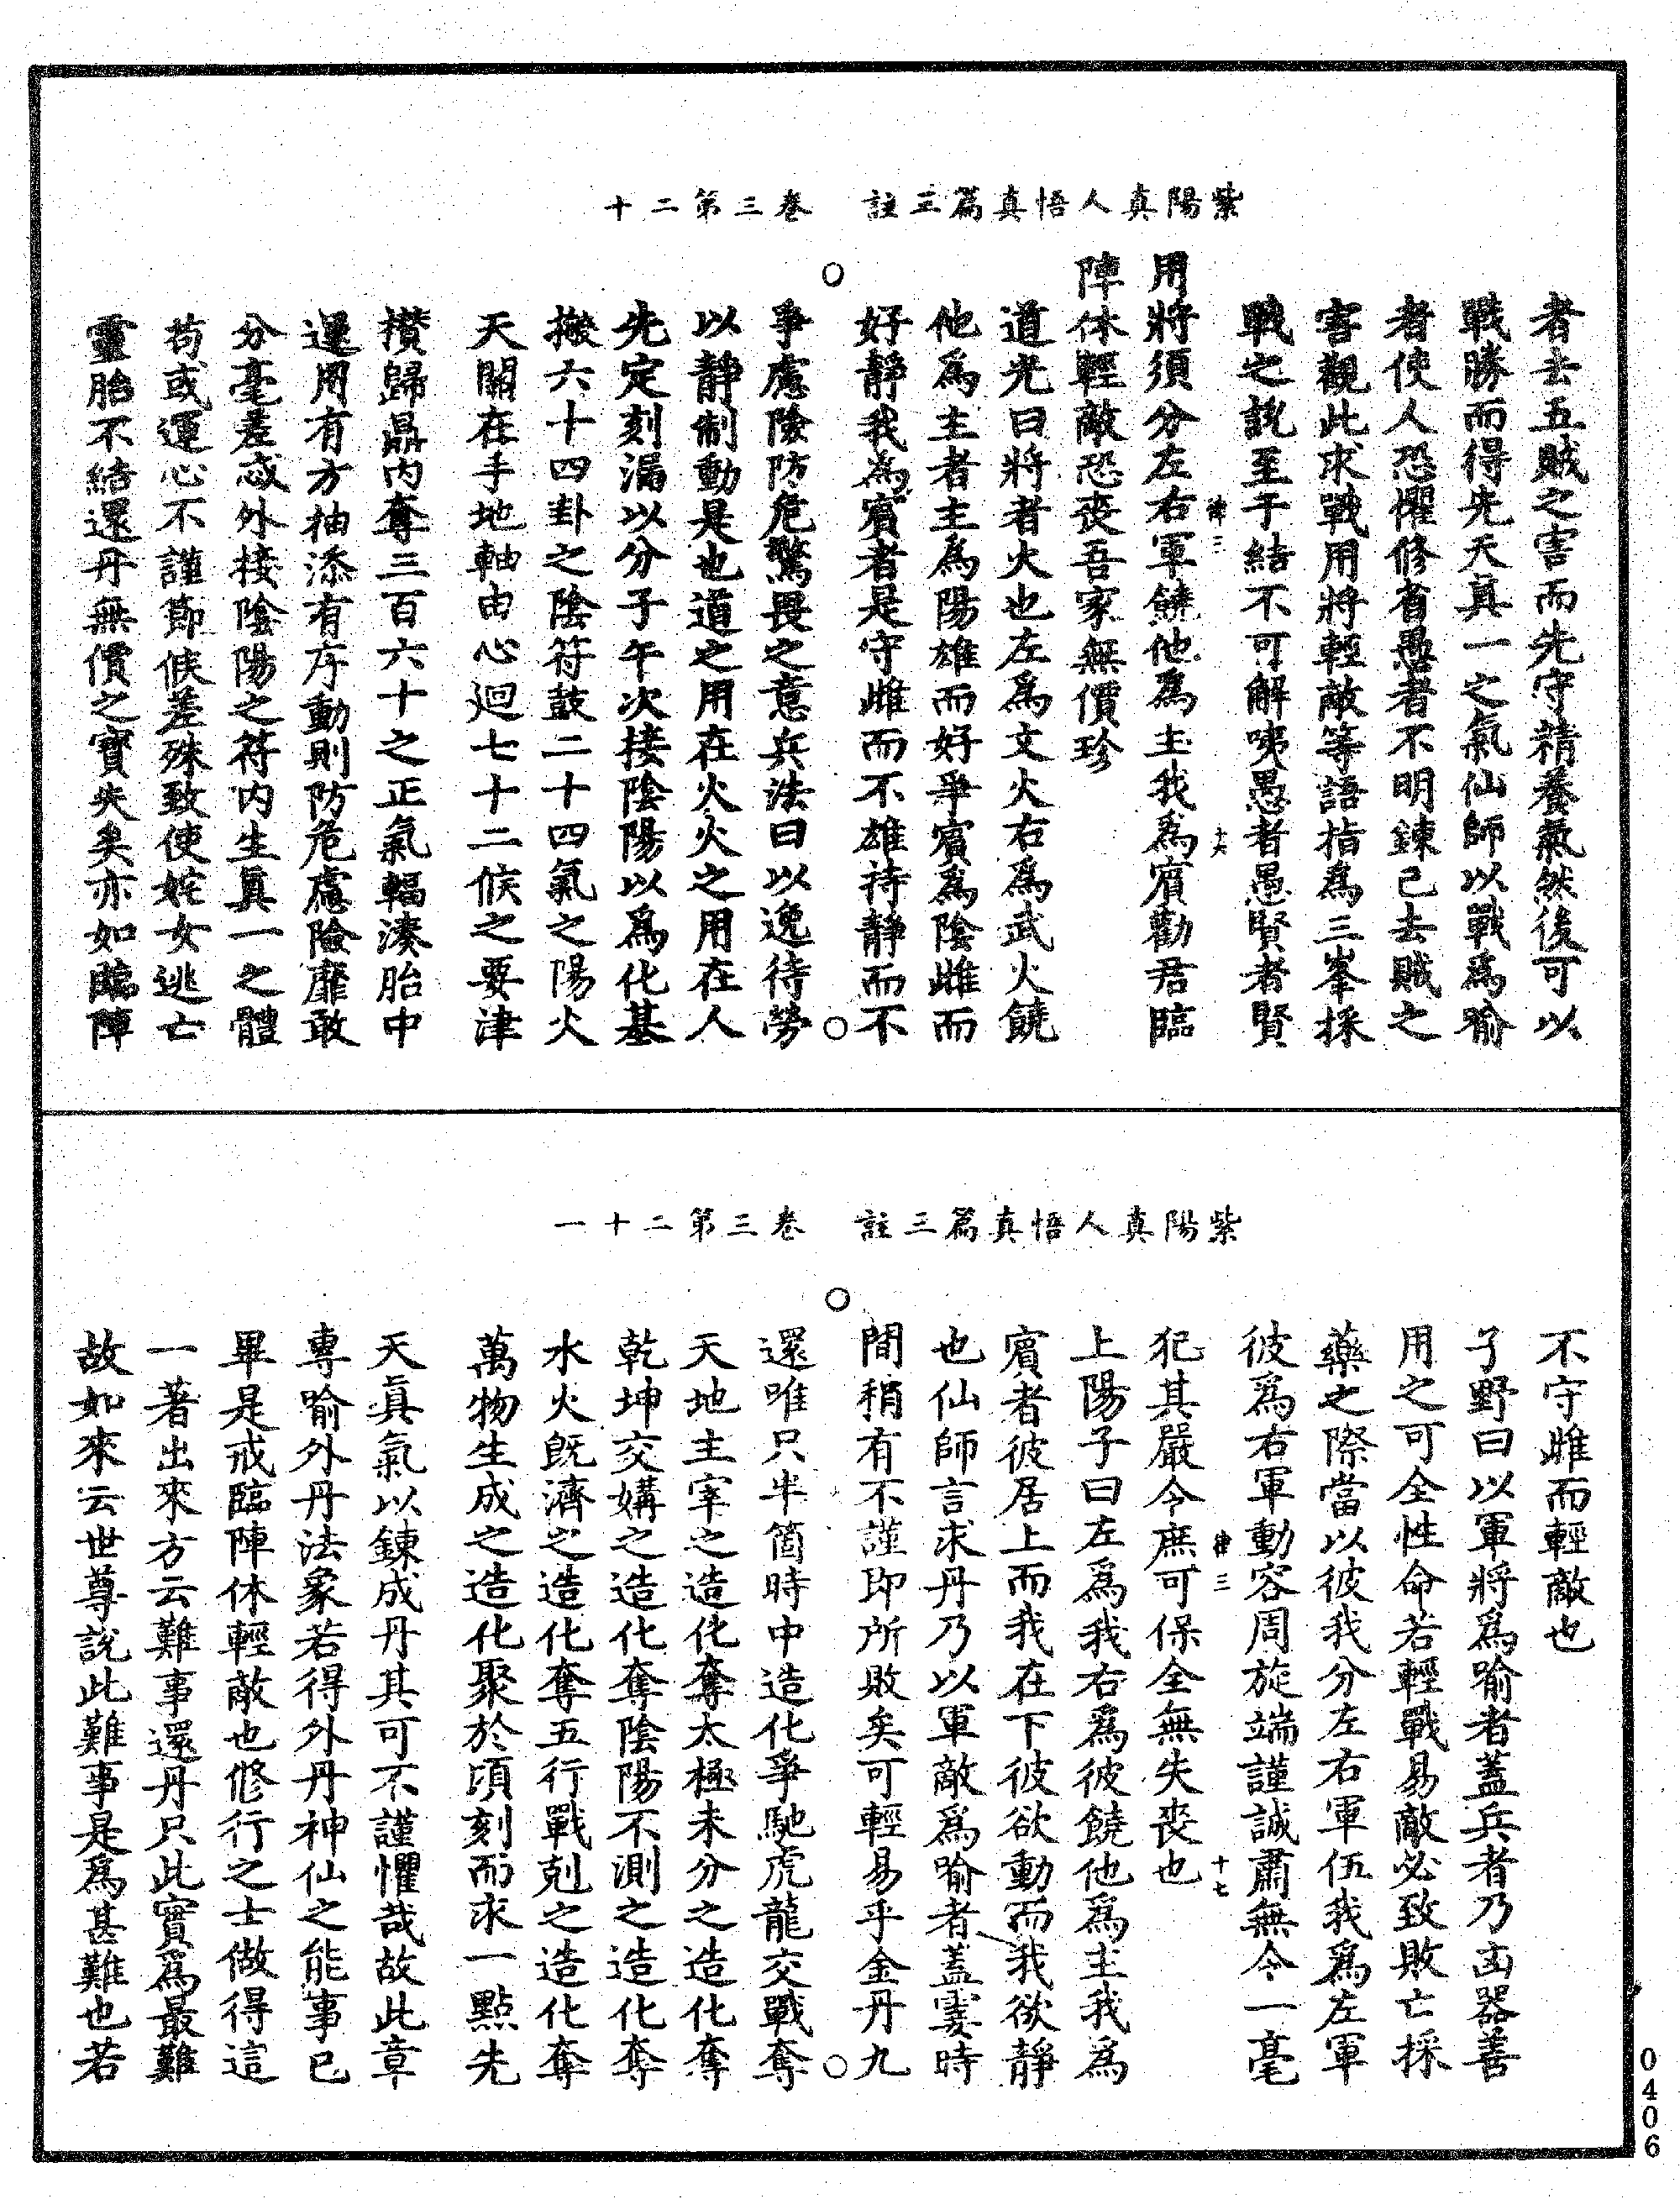 紫陽真人悟真篇三註　卷三第二十
者去五賊之害而先守精養氣然後可以
戰勝而得先天真一之氣仙師以戰爲喻
者使人恐懼修省愚者不明鍊己去賊之
害觀此求戰用將輕敵等語指爲三峯採
戰之說至于結不可解咦愚者愚賢者賢
律三　十六
用將須分左右軍饒他爲主我爲賓勸君臨
陣休輕敵恐喪吾家無價珍
道光曰將者火也左爲文火右爲武火饒
他爲主者主爲陽雄而好爭賓爲陰雌而
好靜我爲賓者是守雌而不雄待靜而不
爭慮險防危驚畏之意兵法曰以逸待勞
以靜制動是也道之用在火火之用在人
先定刻漏以分子午次接陰陽以爲化基
搬六十四卦之陰符鼓二十四氣之陽火
天關在手地軸由心迴七十二候之要津
攢歸鼎內奪三百六十之正氣輻湊胎中
運用有方抽添有序動則防危慮險靡敢
分毫差忒外接陰陽之符內生眞一之體
苟或運心不謹節候差殊致使姹女逃亡
靈胎不結還丹無價之寶失矣亦如臨陣
紫陽真人悟真篇三註　卷三第二十一
不守雌而輕敵也
子野曰以軍將爲喻者蓋兵者乃凶器善
用之可全性命若輕戰易敵必致敗亡採
藥之際當以彼我分左右軍伍我爲左軍
彼爲右軍動容周旋端謹誠肅無令一毫
律三　十七
犯其嚴令庶可保全無失喪也
上陽子曰左爲我右爲彼饒他爲主我爲
賓者彼居上而我在下彼欲動而我欲靜
也仙師言求丹乃以軍敵爲喻者蓋霎時
間稍有不謹即所敗矣可輕易乎金丹九
還唯只半箇時中造化爭馳虎龍交戰奪
天地主宰之造化奪太極未分之造化奪
乾坤交媾之造化奪陰陽不測之造化奪
水火既濟之造化奪五行戰剋之造化奪
萬物生成之造化聚於頃刻而求一點先
天眞氣以鍊成丹其可不謹懼哉故此章
專喻外丹法象若得外丹神仙之能事已
畢是戒臨陣休輕敵也修行之士做得這
一著出來方云難事還丹只此實爲最難
故如來云世尊說此難事是爲甚難也若
0406